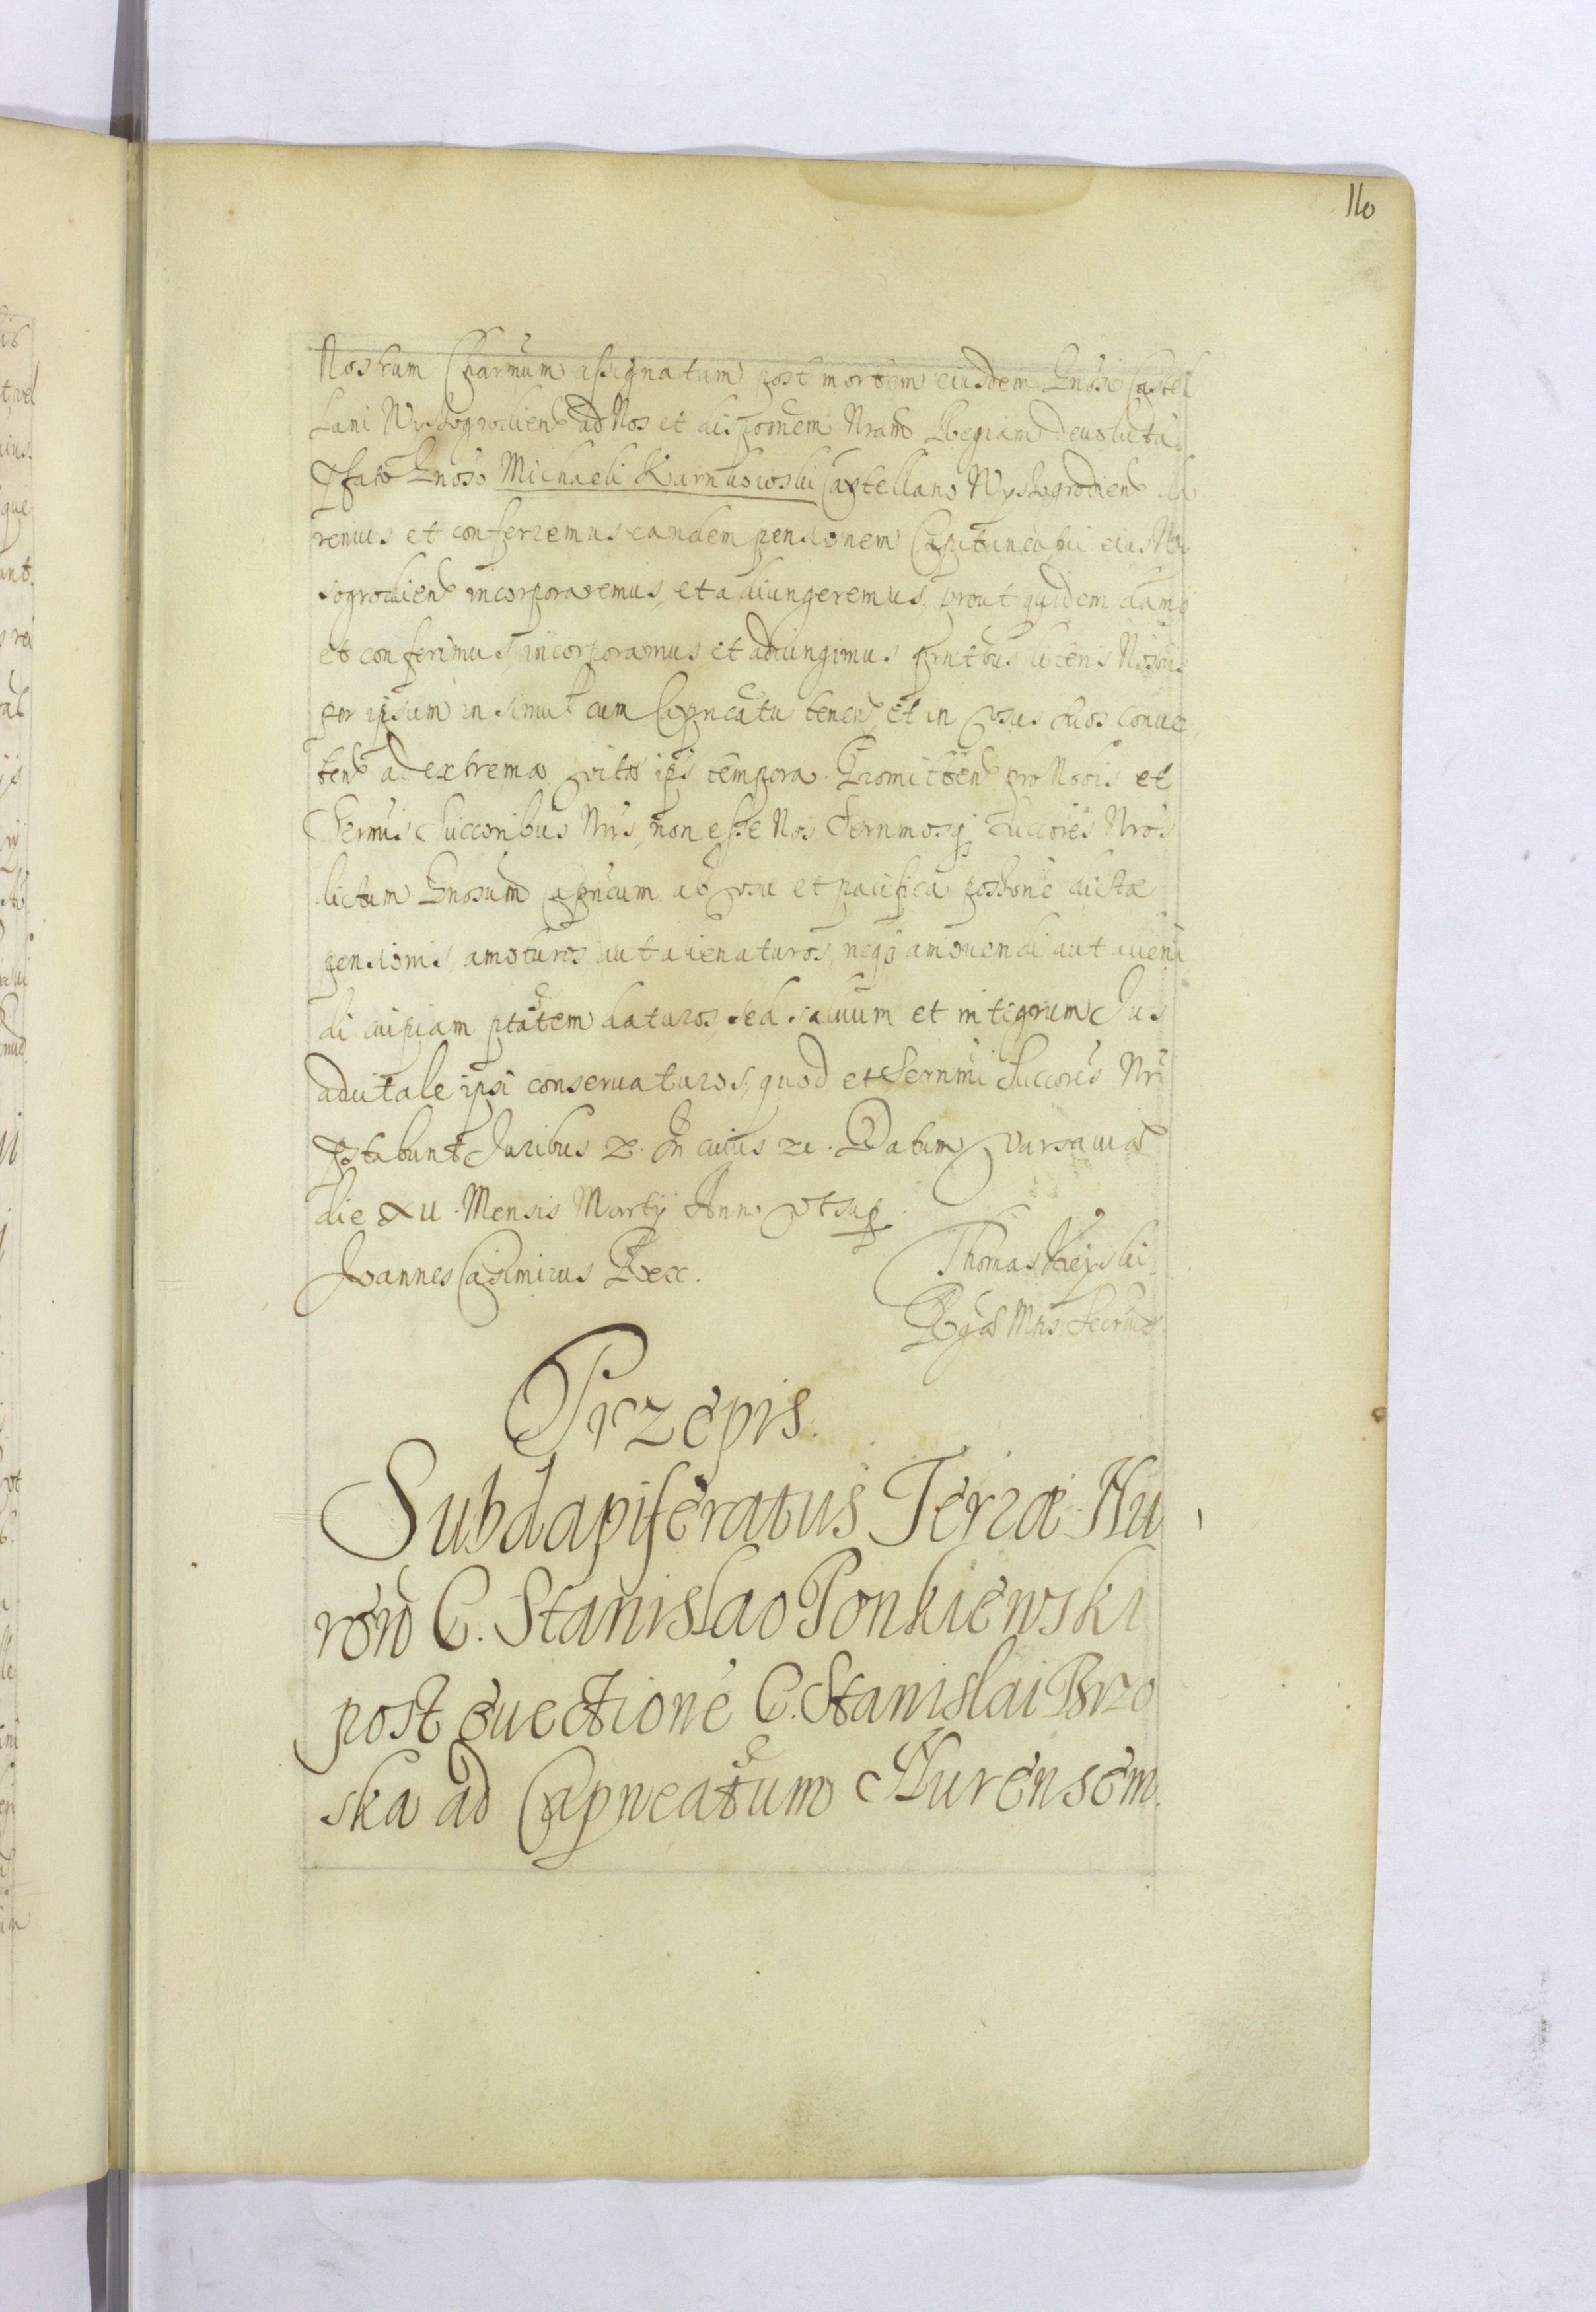 110
Nostrum Charmum assignatam post mortem eiusdem Gnosi Castel
lani Wyszogrodien ad Nos et dispoonem Nram Regiam deuoluta
Pfato Gnoso Michaeli Karnkowski Castellano Wyszogrodien da
remus et conferremus eandem pensionem Capitaneatui eius Wy
sogrodien incorporaremus, et adiungeremus, prout quidem damus
et conferimus, incorporamus et adiungimus pntibus literis Nostris
per ipsum in simul cum Capneatu tenen, et in usus suos conuer
ten ad extrema vitæ ipsi tempora. Promitten pro Nobis et
Sermis Succoribus Nris, non esse Nos Sernmosq Succores Nros
dictum Gnosum Capneum ab usu et pacifica possione dictæ
pensionis amoturos aut alienaturos, neq amouendi aut aliena
di cuipiam ptatem daturos sed saluum et integrum Jus
aduitale ipsi conseruaturos, quod et Sernmi Succores Nri
Pstabunt Juribus &. In cuius rei. Datum Varsauiæ
die XII. Mensis Martij Anno utsup.
Joannes Casimirus Rex.
Thomas Uieyski
Rgæ Mtis Secrius
Przepis.
Subdapiferatus Terræ Nu
ren G. Stanislao Ponkiewski
post euectione G. Stanislai Brzo
ska ad Capneatum Nurensem.